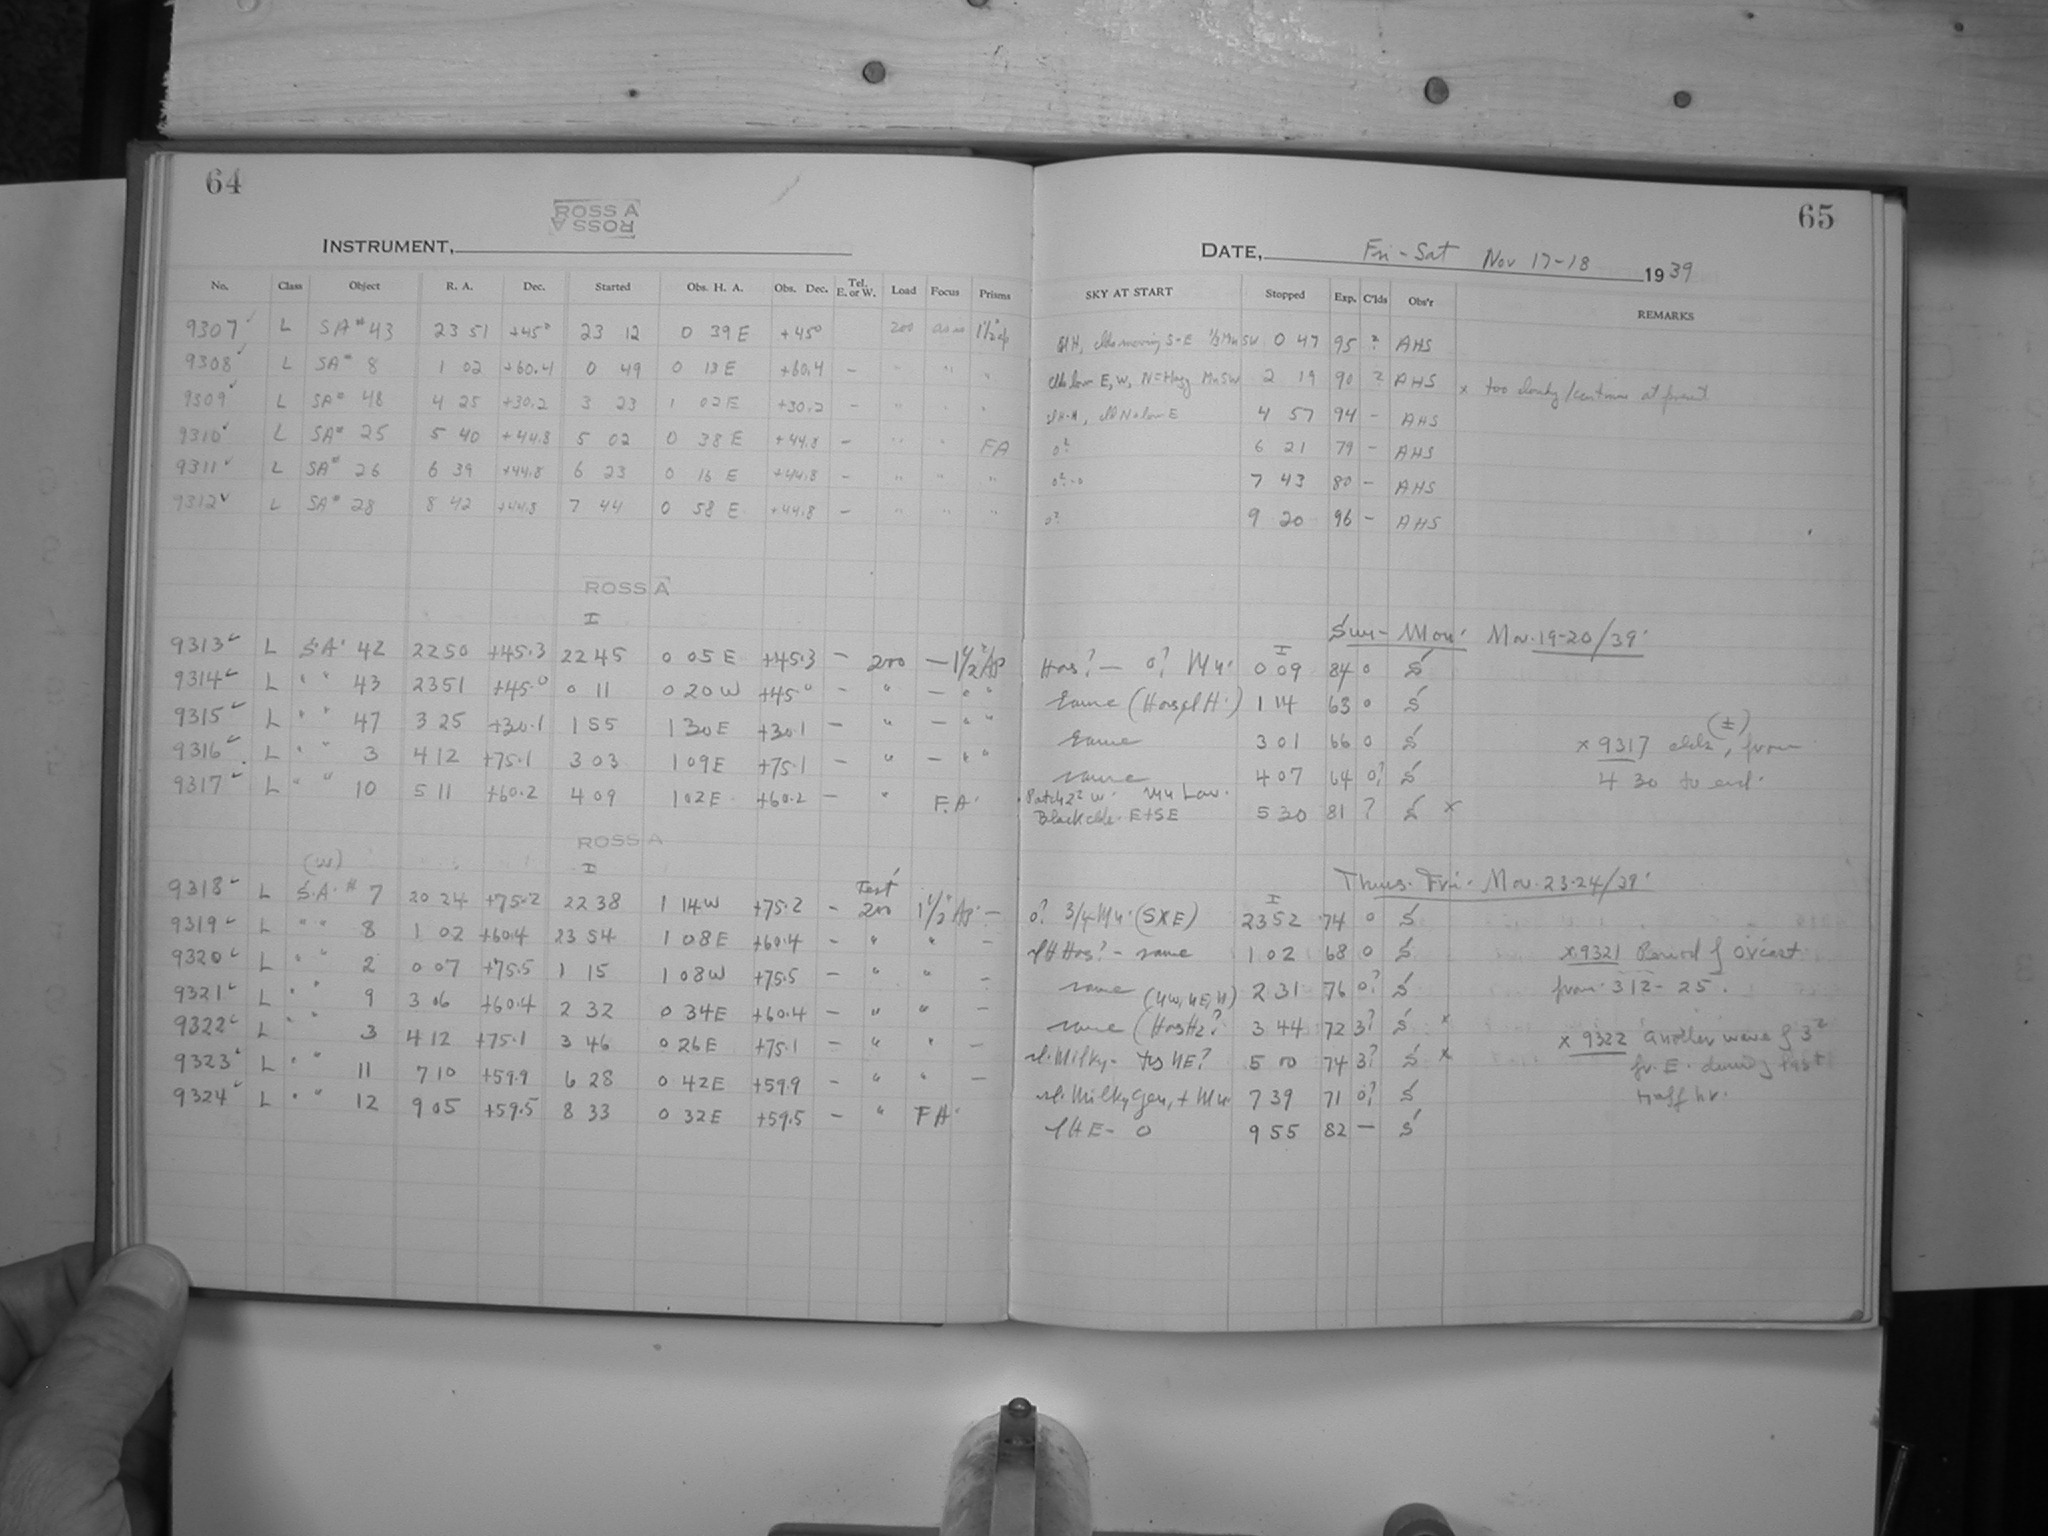 64
ROSS A
ROSS A
INSTRUMENT,
No. Class Object R. A. Dec. Started Obs. H. A. Obs. Dec. Tel. E. or W. Load Focus Prisms
9307 L SA# 43 23 51 +45° 23 12 0 39 E +45° 200
9308 L SA# 8 1 02 +60.4 0 49 0 13 E +60.4 - " " "
9309 L SA# 48 4 25 +30.2 3 23 1 02 E +30.2 - " " "
9310 L SA# 25 5 40 +44.8 5 02 0 38 E +44.8 - " " FA
9311 L SA# 26 6 39 +44.8 6 23 0 16 E +44.8 - " " "
9312 L SA# 28 8 42 +44.8 7 44 0 58 E +44.8 - " " "
ROSS A
I
9313 L S.A. 42 22 50 +45.3 22 45 0 05 E +45.3 - 200 - 1 1/2" Ap
9314 L " " 43 23 51 +45.0 0 11 0 20 W +45.0 - " - " "
9315 L " " 47 3 25 +30.1 1 55 1 30 E +30.1 - " - " "
9316 L " " 3 4 12 +75.1 3 03 1 09 E +75.1 - " - " "
9317 L " " 10 5 11 +60.2 4 09 1 02 E +60.2 - " F.A.
ROSS A
(W) I
9318 L S.A. # 7 20 24 +75.2 22 38 1 14 W +75.2 - Test 200 1 1/2" Ap. -
9319 L " " 8 1 02 +60.4 23 54 1 08 E +60.4 - " " -
9320 L " " 2 0 07 +75.5 1 15 1 08 W +75.5 - " " -
9321 L " " 9 3 06 +60.4 2 32 0 34 E +60.4 - " " -
9322 L " " 3 4 12 +75.1 3 46 0 26 E +75.1 - " " -
9323 L " " 11 7 10 +59.9 6 28 0 42 E +59.9 - " " -
9324 L " " 12 9 05 +59.5 8 33 0 32 E +59.5 - " FA.
65
DATE, Fri-Sat Nov 17-18 1939
SKY AT START Stopped Exp. C'lds Obs'r REMARKS
moving S-E 0 47 95 ? AHS
low E, W, N=Hazy Mn SW 2 19 90 ? AHS x too cloudy/continue at present
N+low E 4 57 94 - AHS
6 21 79 - AHS
7 43 80 - AHS
9 20 96 - AHS
Sun-Mon. Nov. 19-20/39.
I
0? Mn. 0 09 84 0 S
same 1 14 63 0 S
same 3 01 66 0 S x 9317 clds (±), from
same 4 07 64 0? S 4 30 to end.
Mn Low.
Black clds. E+SE 5 30 81 ? S x
Thurs. Fri. Nov. 23-24/39.
I
0? 3/4 Mn. (SXE) 23 52 74 0 S
same 1 02 68 0 S x 9321 Period of Ovcast
same 2 31 76 0? S from 3 12 - 25.
same 3 44 72 3? S x
Milky- NE? 5 00 74 3? S x x 9322 another wave of 3²
Milky gen, + Mn 7 39 71 0? S fr. E. during last
E - 0 9 55 82 - S half hr.